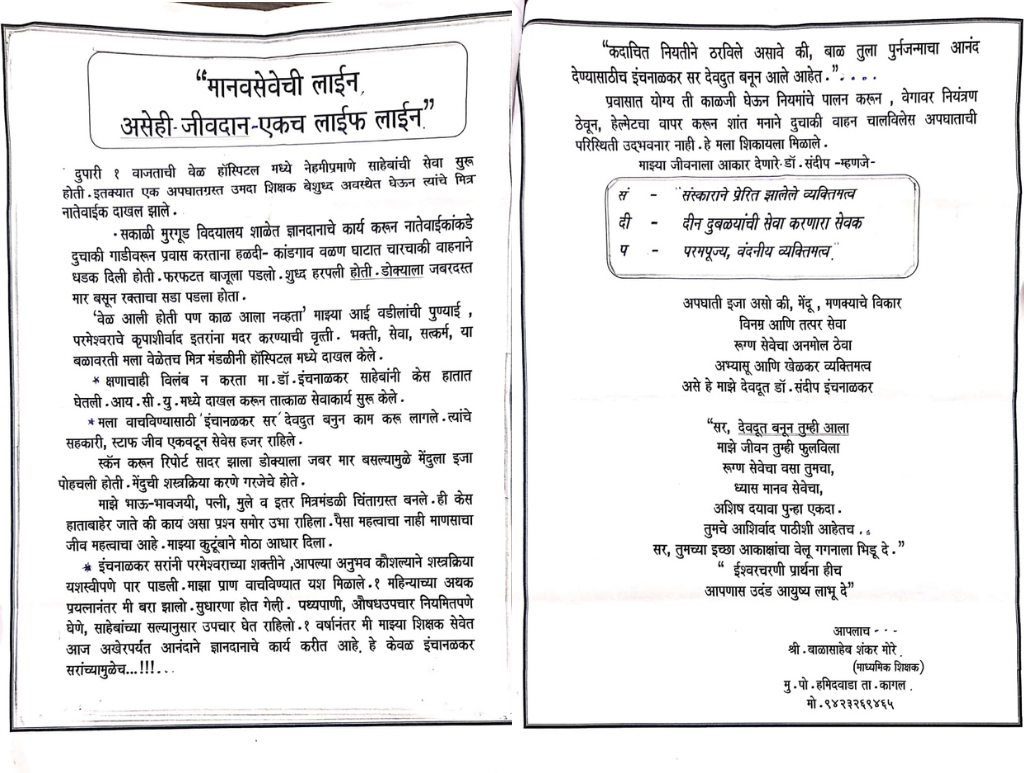 “मानवसेवेची लाईन
असेही-जीवदान-एकच लाईफ लाईन”
दुपारी १ वाजताची वेळ हॉस्पिटल मध्ये नेहमीप्रमाणे साहेबांची सेवा सुरू
होती. इतक्यात एक अपघातग्रस्त उमदा शिक्षक बेशुध्द अवस्थेत घेऊन त्यांचे मित्र
नातेवाईक दाखल झाले.
. सकाळी मुरगूड विदयालय शाळेत ज्ञानदानाचे कार्य करून नातेवाईकांकडे
दुचाकी गाडीवरून प्रवास करताना हळदी- कांडगाव वळण घाटात चारचाकी वाहनाने
धडक दिली होती. फरफटत बाजूला पडलो. शुध्द हरपली होती. डोक्याला जबरदस्त
मार बसून रक्ताचा सडा पडला होता.
'वेळ आली होती पण काळ आला नव्हता' माझ्या आई वडीलांची पुण्याई ,
परमेश्वराचे कृपाशीर्वाद इतरांना मदर करण्याची वृत्ती. भक्ती, सेवा, सत्कर्म, या
बळावरती मला वेळेतच मित्र मंडळीनी हॉस्पिटल मध्ये दाखल केले.
* क्षणाचाही विलंब न करता मा.डॉ.इंचनाळकर साहेबांनी केस हातात
घेतली. आय. सी. यु. मध्ये दाखल करून तात्काळ सेवाकार्य सुरू केले.
* मला वाचविण्यासाठी 'इंचानळकर सर' देवदुत बनुन काम करू लागले. त्यांचे
सहकारी, स्टाफ जीव एकवटून सेवेस हजर राहिले.
स्कॅन करून रिपोर्ट सादर झाला डोक्याला जबर मार बसल्यामुळे मेंदुला इजा
पोहचली होती. मेंदुची शस्त्रक्रिया करणे गरजेचे होते.
माझे भाऊ-भावजयी, पत्नी, मुले व इतर मित्रमंडळी चिंताग्रस्त बनले. ही केस
हाताबाहेर जाते की काय असा प्रश्न समोर उभा राहिला. पैसा महत्वाचा नाही माणसाचा
जीव महत्वाचा आहे. माझ्या कुटूंबाने मोठा आधार दिला.
* इंचनाळकर सरांनी परमेश्वराच्या शक्तीने, आपल्या अनुभव कौशल्याने शस्त्रक्रिया
यशस्वीपणे पार पाडली. माझा प्राण वाचविण्यात यश मिळाले. १ महिन्याच्या अथक
प्रयत्नानंतर मी बरा झालो. सुधारणा होत गेली. पथ्यपाणी, औषधउपचार नियमितपणे
घेणे, साहेबांच्या सल्यानुसार उपचार घेत राहिलो. १ वर्षानंतर मी माझ्या शिक्षक सेवेत
आज अखेरपर्यत आनंदाने ज्ञानदानाचे कार्य करीत आहे. हे केवळ इंचानळकर
सरांच्यामुळेच...!!!...
“कदाचित नियतीने ठरविले असावे की, बाळ तुला पुर्नजन्माचा आनंद
देण्यासाठीच इंचनाळकर सर देवदुत बनून आले आहेत.”....
प्रवासात योग्य ती काळजी घेऊन नियमांचे पालन करून , वेगावर नियंत्रण
ठेवून, हेल्मेटचा वापर करून शांत मनाने दुचाकी वाहन चालविलेस अपघाताची
परिस्थिती उद्भवनार नाही. हे मला शिकायला मिळाले.
माझ्या जीवनाला आकार देणारे- डॉ. संदीप -म्हणजे-
सं - संस्काराने प्रेरित झालेले व्यक्तिमत्व
दी - दीन दुबळयांची सेवा करणारा सेवक
प - परमपूज्य, वंदनीय व्यक्तिमत्व.
अपघाती इजा असो की, मेंदू , मणक्याचे विकार
विनम्र आणि तत्पर सेवा
रूग्ण सेवेचा अनमोल ठेवा
अभ्यासू आणि खेळकर व्यक्तिमत्व
असे हे माझे देवदूत डॉ. संदीप इंचनाळकर
“सर, देवदूत बनून तुम्ही आला
माझे जीवन तुम्ही फुलविला
रूग्ण सेवेचा वसा तुमचा,
ध्यास मानव सेवेचा,
अशिष दयावा पुन्हा एकदा.
तुमचे आशिर्वाद पाठीशी आहेतच ..
सर, तुमच्या इच्छा आकाक्षांचा वेलू गगनाला भिडू दे.”
“ ईश्वरचरणी प्रार्थना हीच
आपणास उदंड आयुष्य लाभू दे”
आपलाच - - -
श्री. बाळासाहेब शंकर मोरे.
(माध्यमिक शिक्षक)
मु. पो. हमिदवाडा ता. कागल.
मो. ९४२३२६९४६५